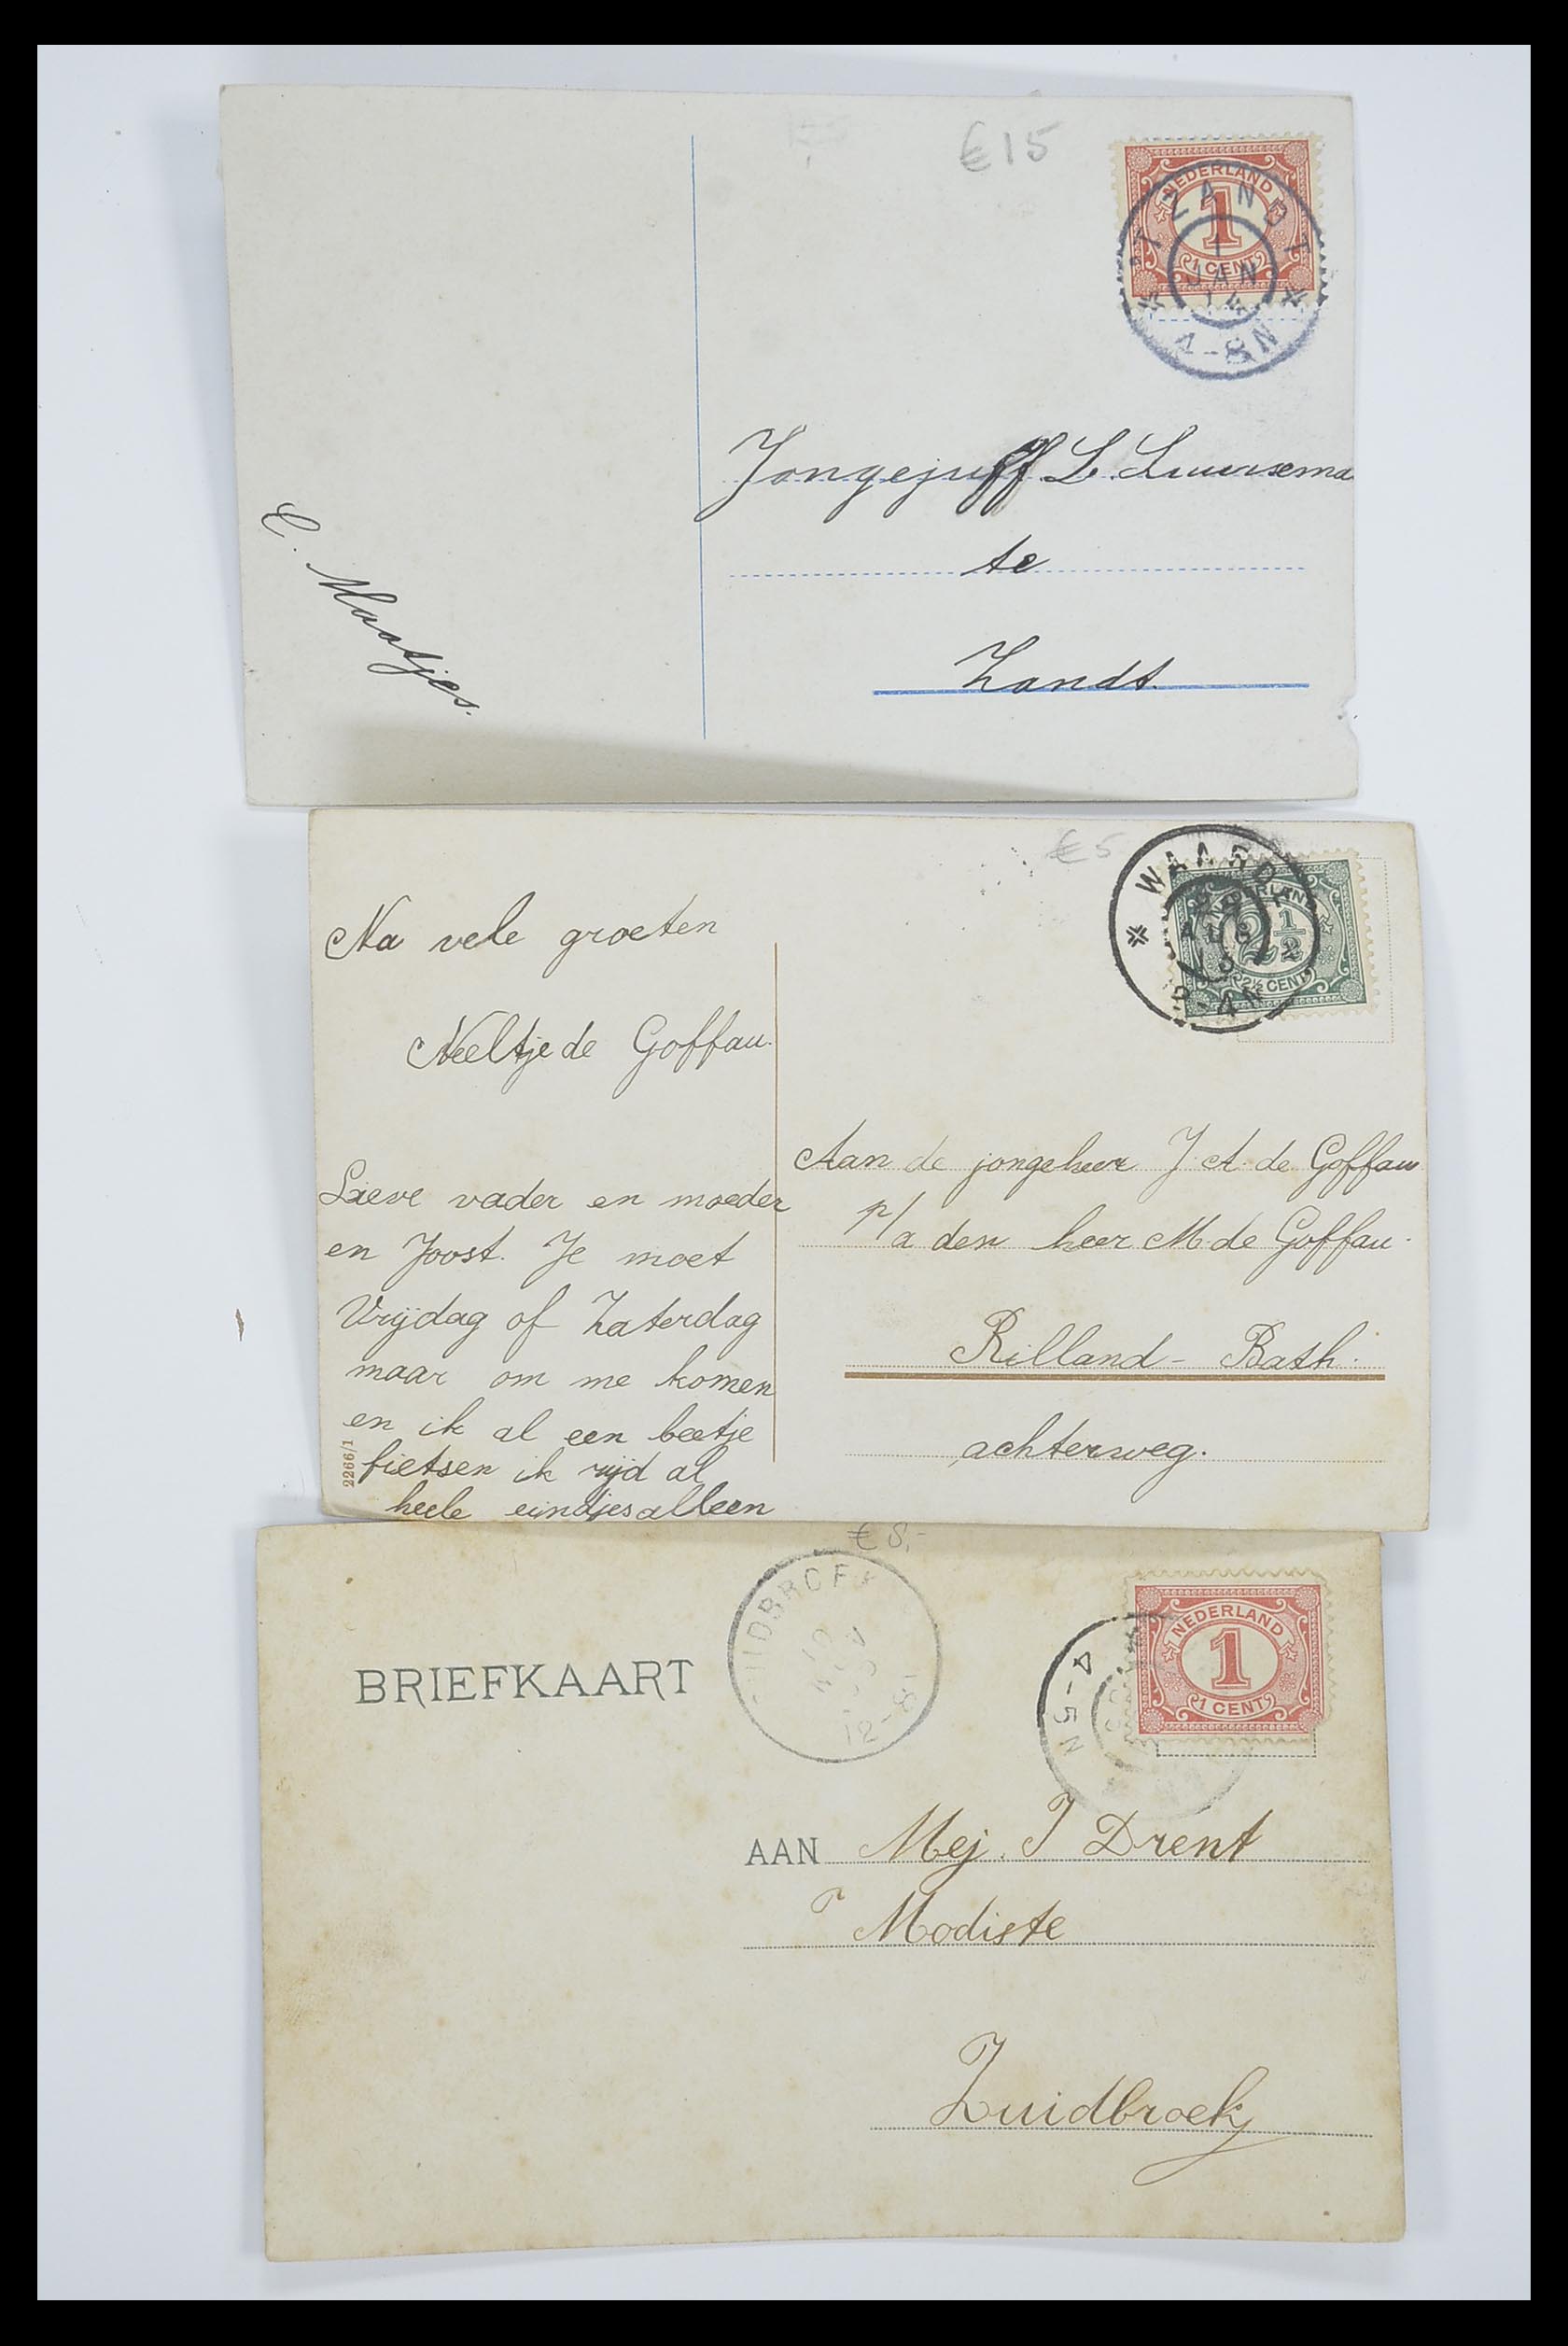 €15
NEDERLAND
1
1 CENT
'T ZANDT
1
JAN
14
4-8N
Jongejuff. L. Luursema
te
Zandt.
C. Maatjes.
€5
WAARDE
AUG
NEDERLAND
2½
2½ CENT
Na vele groeten
Neeltje de Goffau.
Lieve vader en moeder
en Joost. Je moet
Vrijdag of Zaterdag
maar om me komen
en ik al een beetje
fietsen ik rijd al
heele eindjes alleen
2266/1
Aan de jongeheer J. A. de Goffau
p/a den heer M. de Goffau.
Rilland - Bath.
achterweg.
€8,-
ZUIDBROEK
12-8
4-5N
NEDERLAND
1
1 CENT
BRIEFKAART
AAN Mej. J Drent
Modiste
Zuidbroek